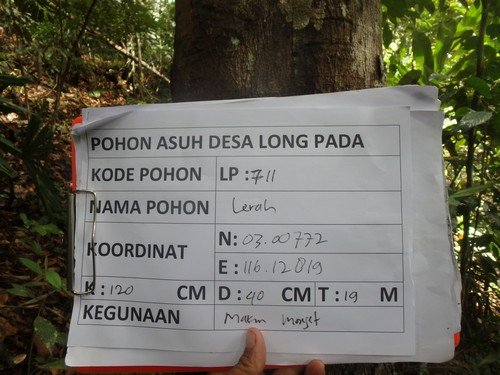 POHON ASUH DESA LONG PADA
KODE POHON LP : 711
NAMA POHON Lerah
KOORDINAT N: 03.00772
E : 116.12819
K : 120 CM D : 40 CM T : 19 M
KEGUNAAN Makan